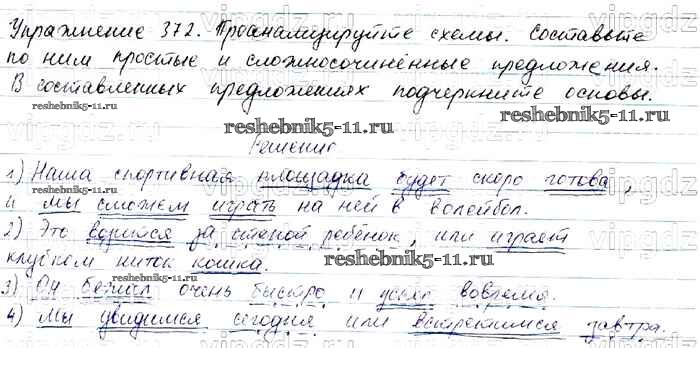 Упражнение 372. Проанализируйте схемы. Составьте
по ним простые и сложносочинённые предложения.
В составленных предложениях подчеркните основы.
reshebnik5-11.ru
reshebnik5-11.ru
Решение
1) Наша спортивная площадка будет скоро готова,
и мы сможем играть на ней в волейбол.
2) Это возится за стеной ребёнок, или играет
клубком ниток кошка.
reshebnik5-11.ru
3) Он бежал очень быстро и успел вовремя.
4) Мы увидимся сегодня или встретимся завтра.